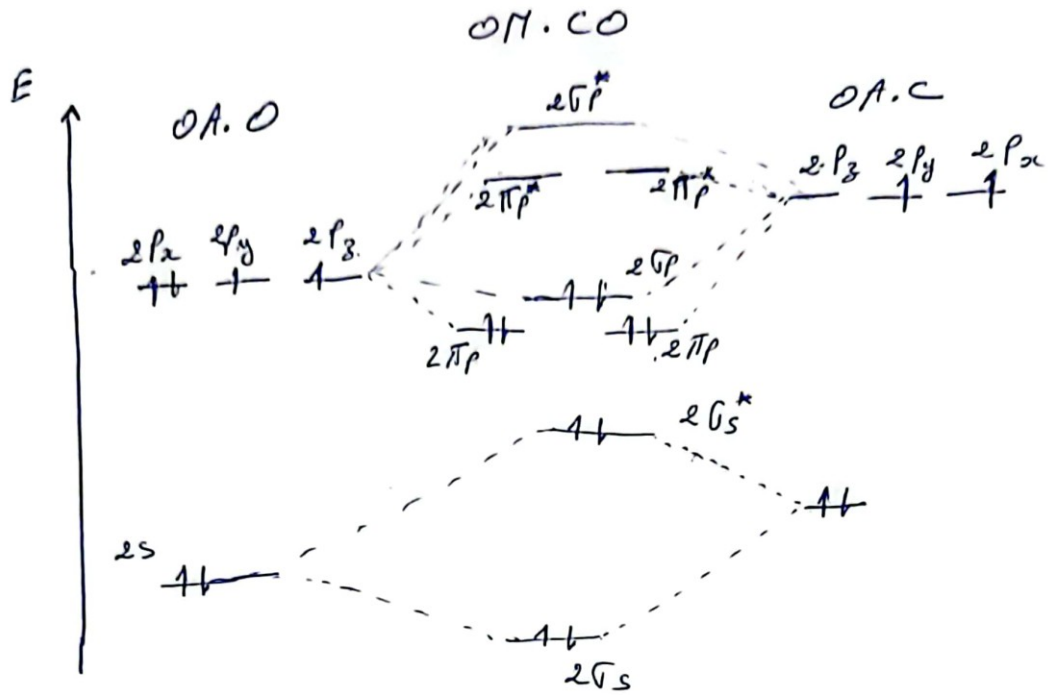 OM.CO
E
OA.O
2σp*
OA.C
2πp* 2πp*
2Pz 2Py 2Px
2Px 2Py 2Pz
2σp
2πp 2πp
2σs*
2s
2σs